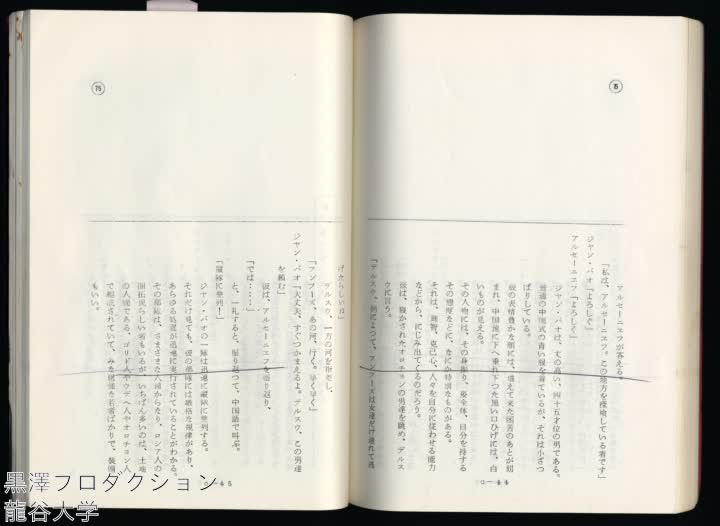 アルセーニエフが答える。
「私は、アルセーニエフ。この地方を探検している者です」
ジャン・バオ「よろしく」
アルセーニエフ「よろしく」
ジャン・バオは、丈の高い、四十五才位の男である。
普通の中国式の青い服を着ているが、それは小ざっ
ぱりしている。
彼の表情豊かな顔には、堪えて来た困苦のあとが刻
まれ、中国流に下へ垂れ下った黒い口ひげには、白
いものが見える。
その人物には、その身振り、姿全体、自分を持する
その態度などに、なにか特別なものがある。
それは、理智、克己心、人々を自分に従わせる能力
などから、にじみ出てくるのだろう。
彼は、残かされたオロチョンの男達を眺め、デルス
ウに言う。
「デルスウ、例によって、フンフーズは女達だけ連れて逃
げたらしいね」
デルスウ、一方の河を指差し、
「フンフーズ、あの河、行く。早く早く」
ジャン・バオ「大丈夫、すぐつかまえるよ。デルスウ、この男達
を頼む」
彼は、アルセーニエフを振り返り、
「では……」
と、一礼すると、振り返って、中国語で叫ぶ。
「縦隊に整列！」
ジャン・バオの一隊は迅速に縦隊に整列する。
それだけ見ても、彼の部隊には厳格な規律があり、
あらゆる処置が迅速に実行されていることがわかる。
その部隊は、さまざまな人種からなり、ロシア人の
開拓民らしい者もいるが、いちばん多いのは、土地
の人間である、ゴリド人やウデヘ人やオロチョン人
で編成されていて、みな
もいい。
75
0－44
0－45
黒澤プロダクション
龍谷大学